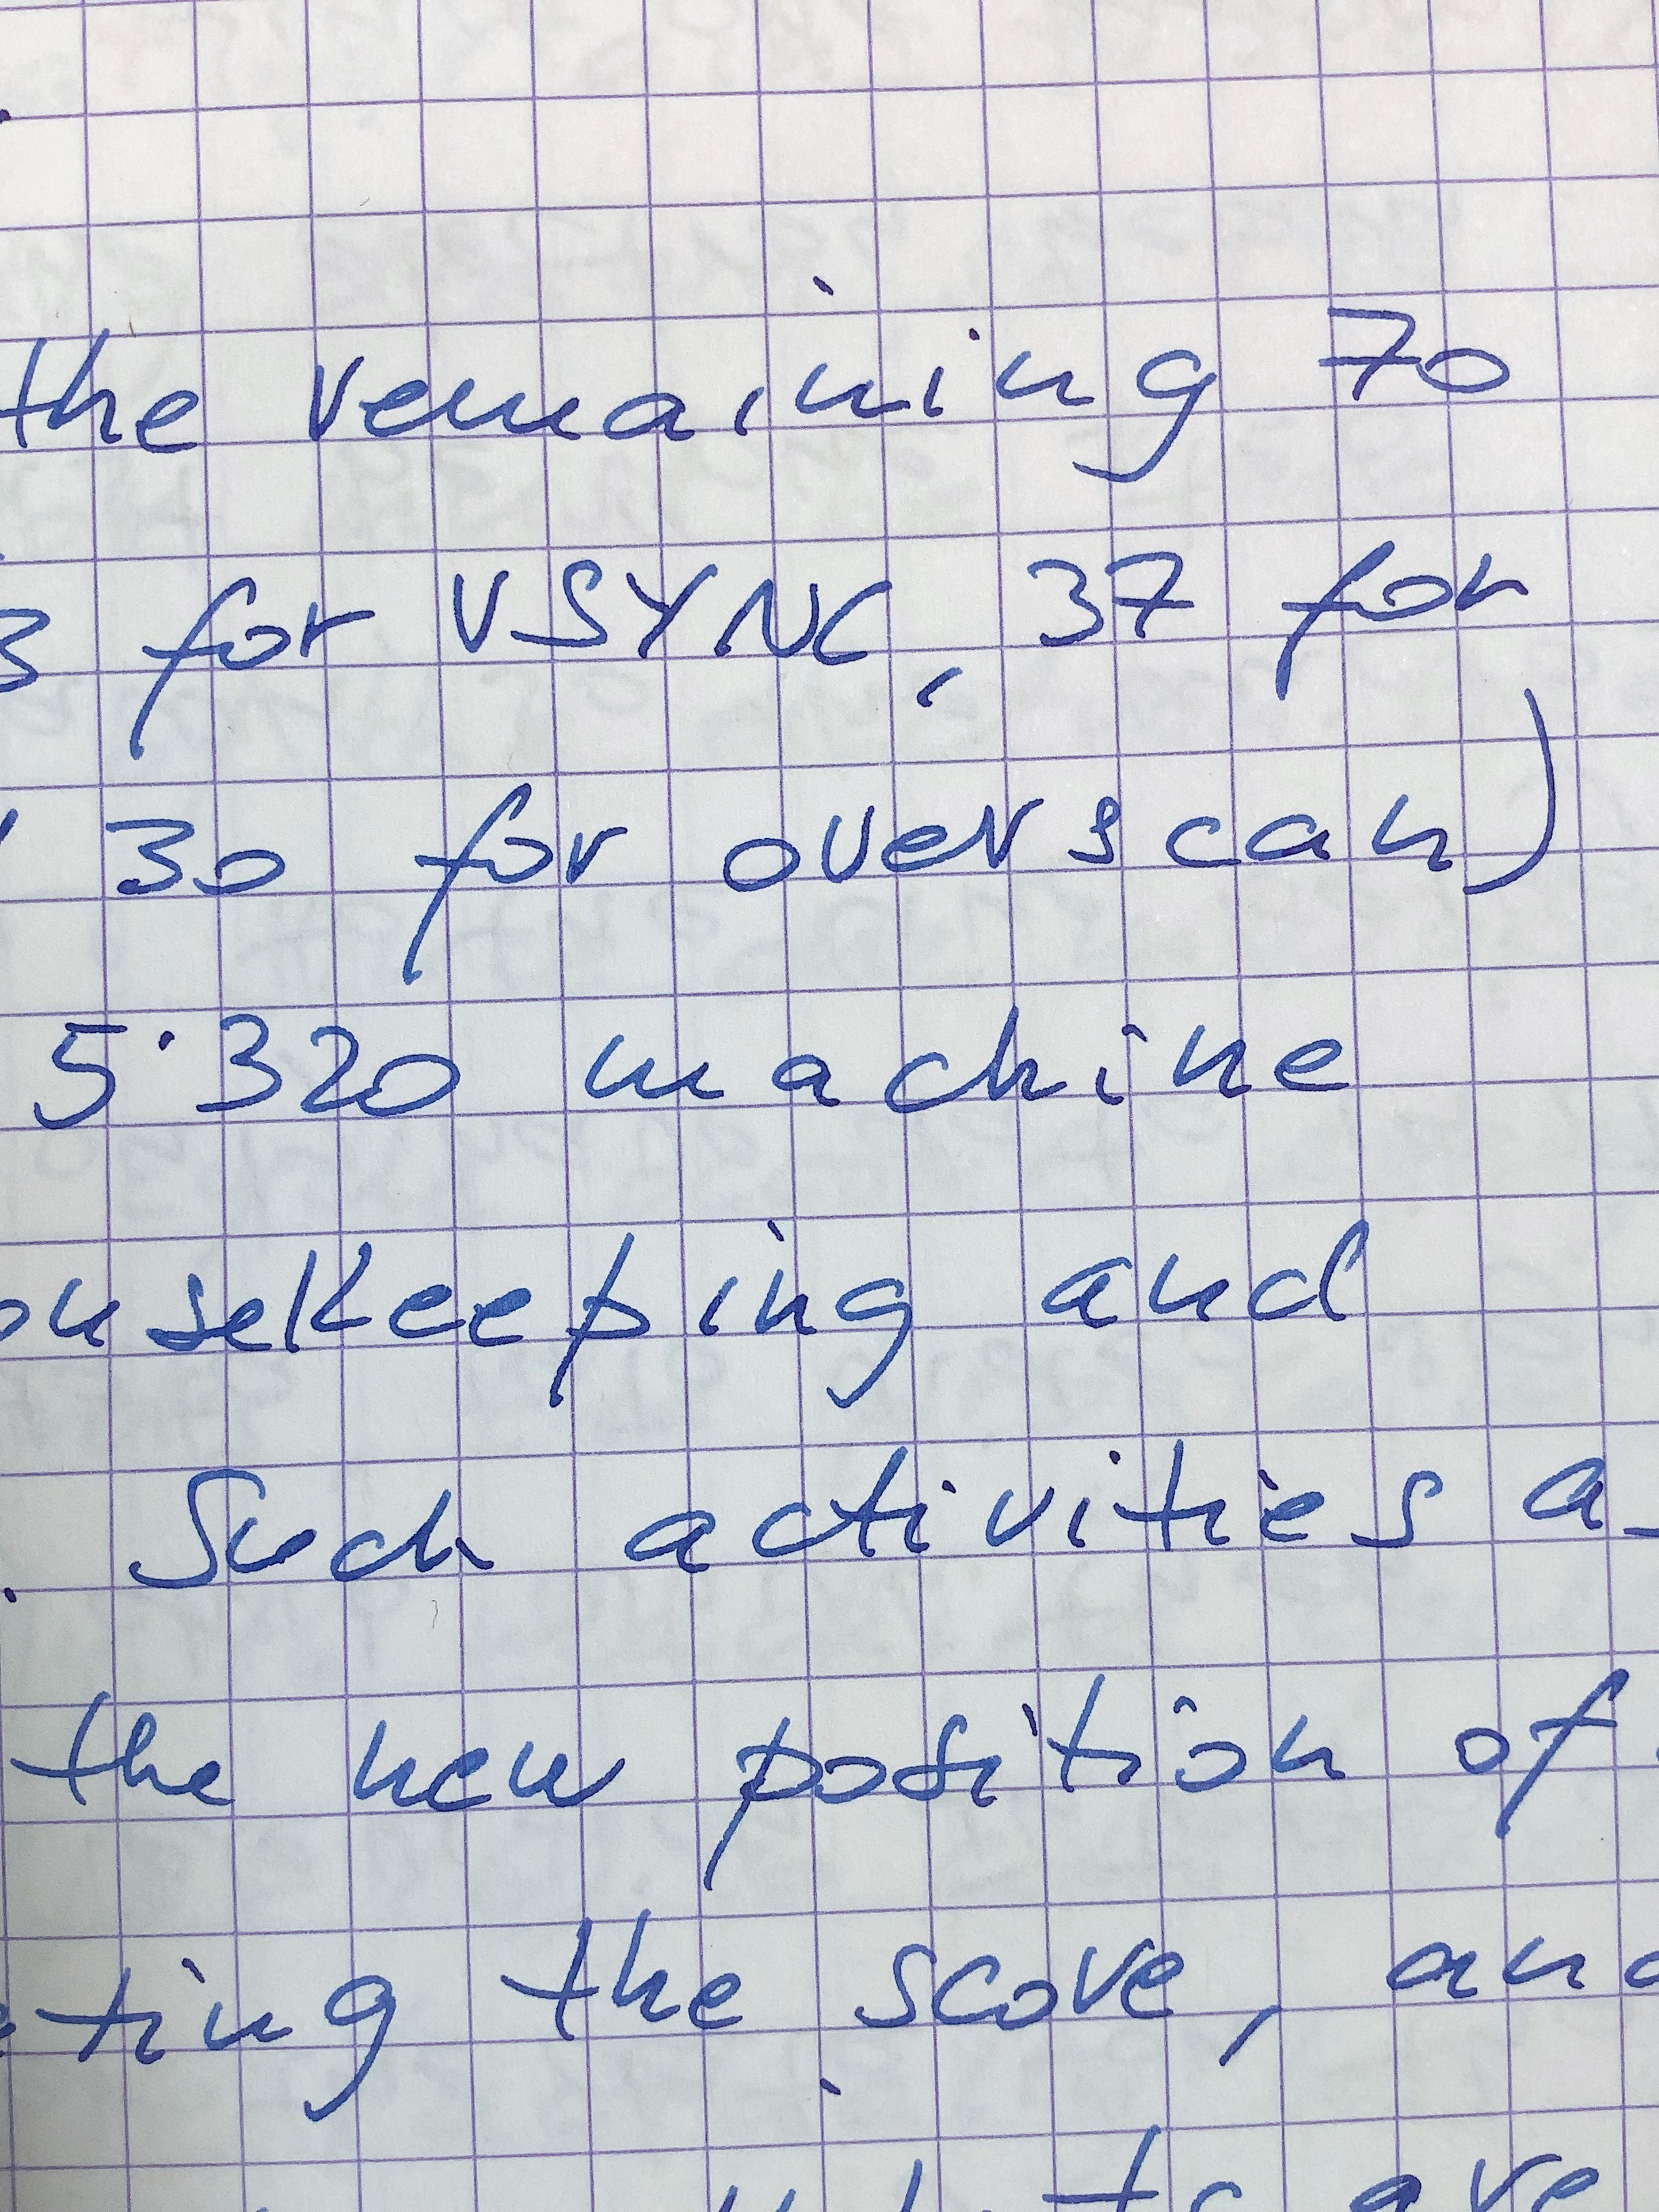 the remaining 70
3 for VSYNC, 37 for
30 for overscan)
5'320 machine
ousekeeping and
. Such activities as
the new position of
ting the score, and
are